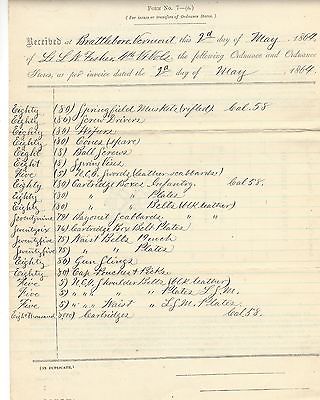 FORM No. 7—(a)
(For issues or transfers of Ordnance Stores.)
Received at Brattleboro Vermont this 2d day of May 1864,
of Lt. L. W. Fisher, 4th Vt. Vols the following Ordnance and Ordnance
Stores, as per invoice dated the 2d day of May 1864.
Eighty (80) Springfield Muskets (rifled) Cal. 58
Eighty (80) Screw Drivers
Eighty (80) Wipers
Eighty (80) Cones (spare)
Eight (8) Ball Screws
Eight (8) Spring Vises
Five (5) N.C.O. Swords (leather scabbards)
Eighty (80) Cartridge Boxes Infantry. Cal 58.
Eighty (80) " " Plates
Eighty (80) " " Belts (blk leather)
Seventynine (79) Bayonet Scabbards " "
Seventysix (76) Cartridge Box Belt Plates
Seventyfive (75) Waist Belts
Seventyfive (75) " " Plates
Eighty (80) Gun Slings
Eighty (80) Cap Pouches & Picks
Five (5) N.C.O. Shoulder Belts (blk leather)
Five (5) " " " " Plates
Five (5) " " Waist " Plates
Eight thousand Cartridges Cal 58.
(IN DUPLICATE.)